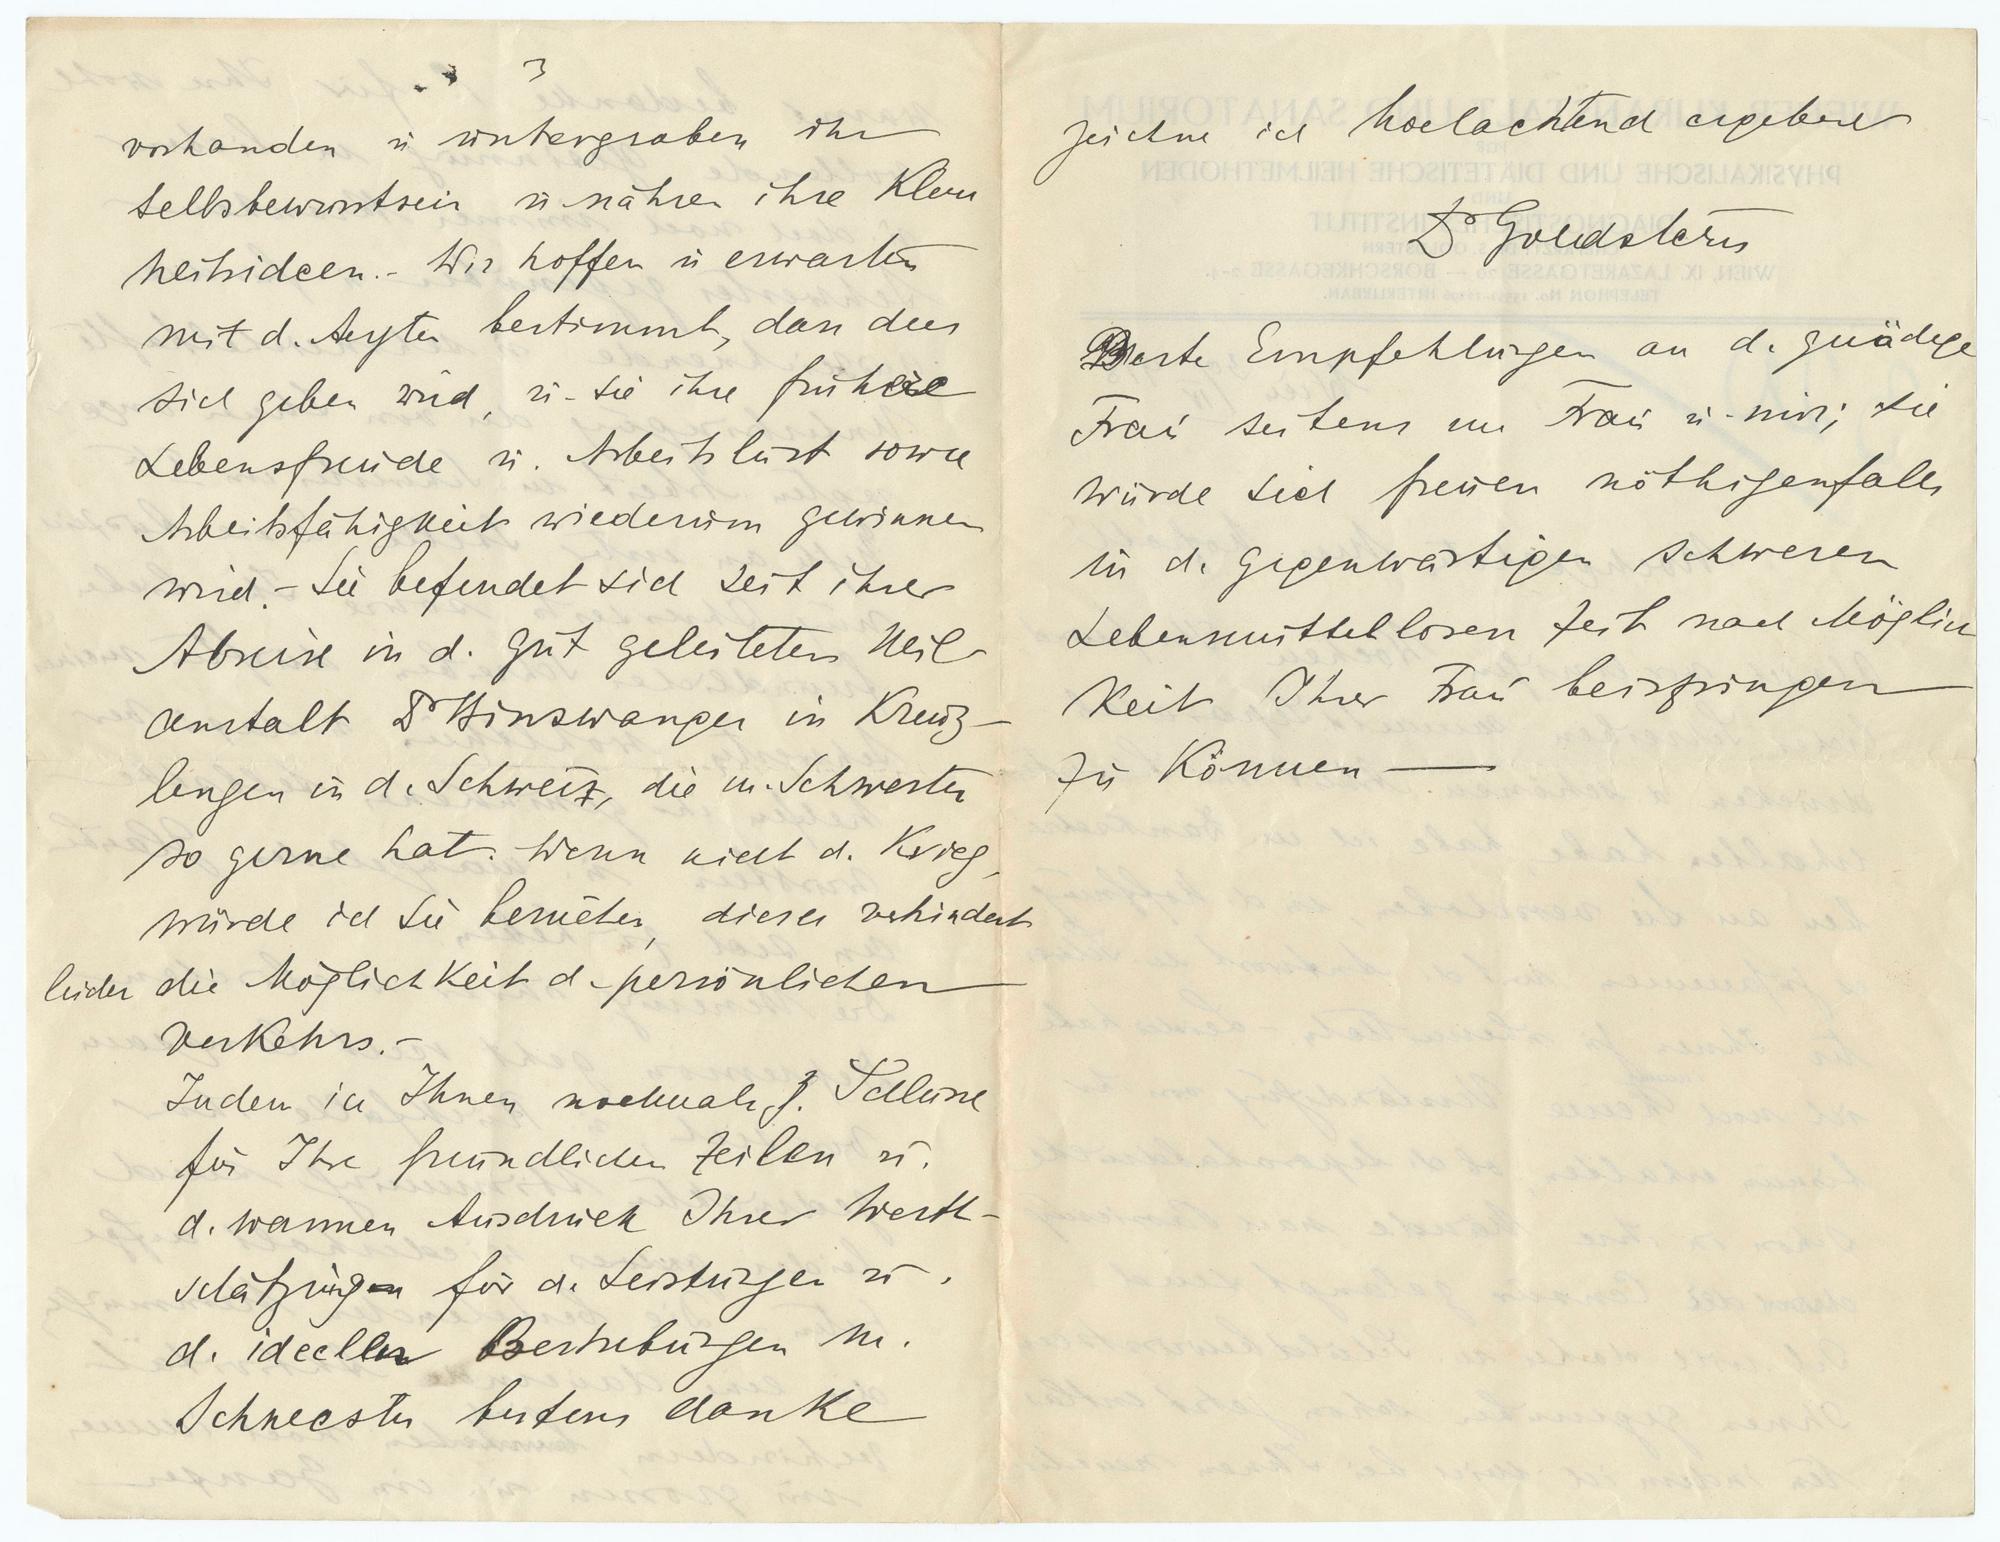 3
vorhanden u untergraben ihr
Selbsbewusstsein u nähren ihre Klein
heitsideen.- Wir hoffen u erwarten
mit d. Aerzten bestimmt, dass dies
sich geben wird, u - sie ihre frühere
Lebensfreude u. Arbeitslust sowie
Arbeitsfähigkeit wiederum gewinnen
wird.- Sie befindet sich seit ihrer
Abreise in d. gut geleiteten Heil-
anstalt Dr Binswanger in Kreuz-
lingen in d. Schweiz, die m. Schwester
so gerne hat. Wenn nicht d. Krieg,
würde ich Sie besuchen, dieser verhindert
leider die Möglichkeit d. persönlichen
Verkehrs.-
Indem ich Ihnen nochmals z. Schlusse
für Ihre freundlichen Zeilen u.
d. warmen Ausdruck Ihrer Werth-
schätzungen für d. Leistungen u.
d. ideellen Bestrebungen m.
Schwester bestens danke
zeichne ich hochachtend ergebener
Dr Goldstern
Beste Empfehlungen an d. gnädige
Frau seitens m Frau u - mir; sie
würde sich freuen nöthigenfalls
in d. gegenwärtigen schweren
Lebensmittellosen Zeit nach Möglich
keit Ihrer Frau beispringen
zu können —